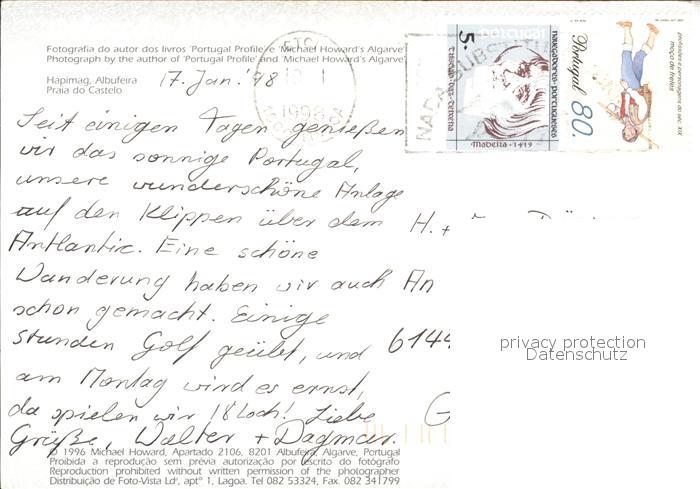 Fotografia do autor dos livros 'Portugal Profile' e 'Michael Howard's Algarve'
Photograph by the author of 'Portugal Profile' and 'Michael Howard's Algarve'
Hapimag, Albufeira
Praia do Castelo
17. Jan. '98
Seit einigen Tagen genießen
wir das sonnige Portugal,
unsere wunderschöne Anlage
auf den Klippen über dem
Antlantic. Eine schöne
Wanderung haben wir auch
schon gemacht. Einige
stunden Golf geübt, und
am Montag wird es ernst,
da spielen wir 18 Loch! Liebe
Grüße, Walter + Dagmar.
H. +
An
6144
G
© 1996 Michael Howard, Apartado 2106, 8201 Albufeira, Algarve, Portugal
Proibida a reprodução sem prévia autorização por escrito do fotógrafo
Reproduction prohibited without written permission of the photographer
Distribuição de Foto-Vista Ldª, aptº 1, Lagoa. Tel 082 53324, Fax. 082 341799
1998
portugal
5.
navegadores portugueses
Tristão Vaz Teixeira
Madeira - 1419
Portugal 80.
profissões e personagens do séc. XIX
moço de fretes
privacy protection
Datenschutz